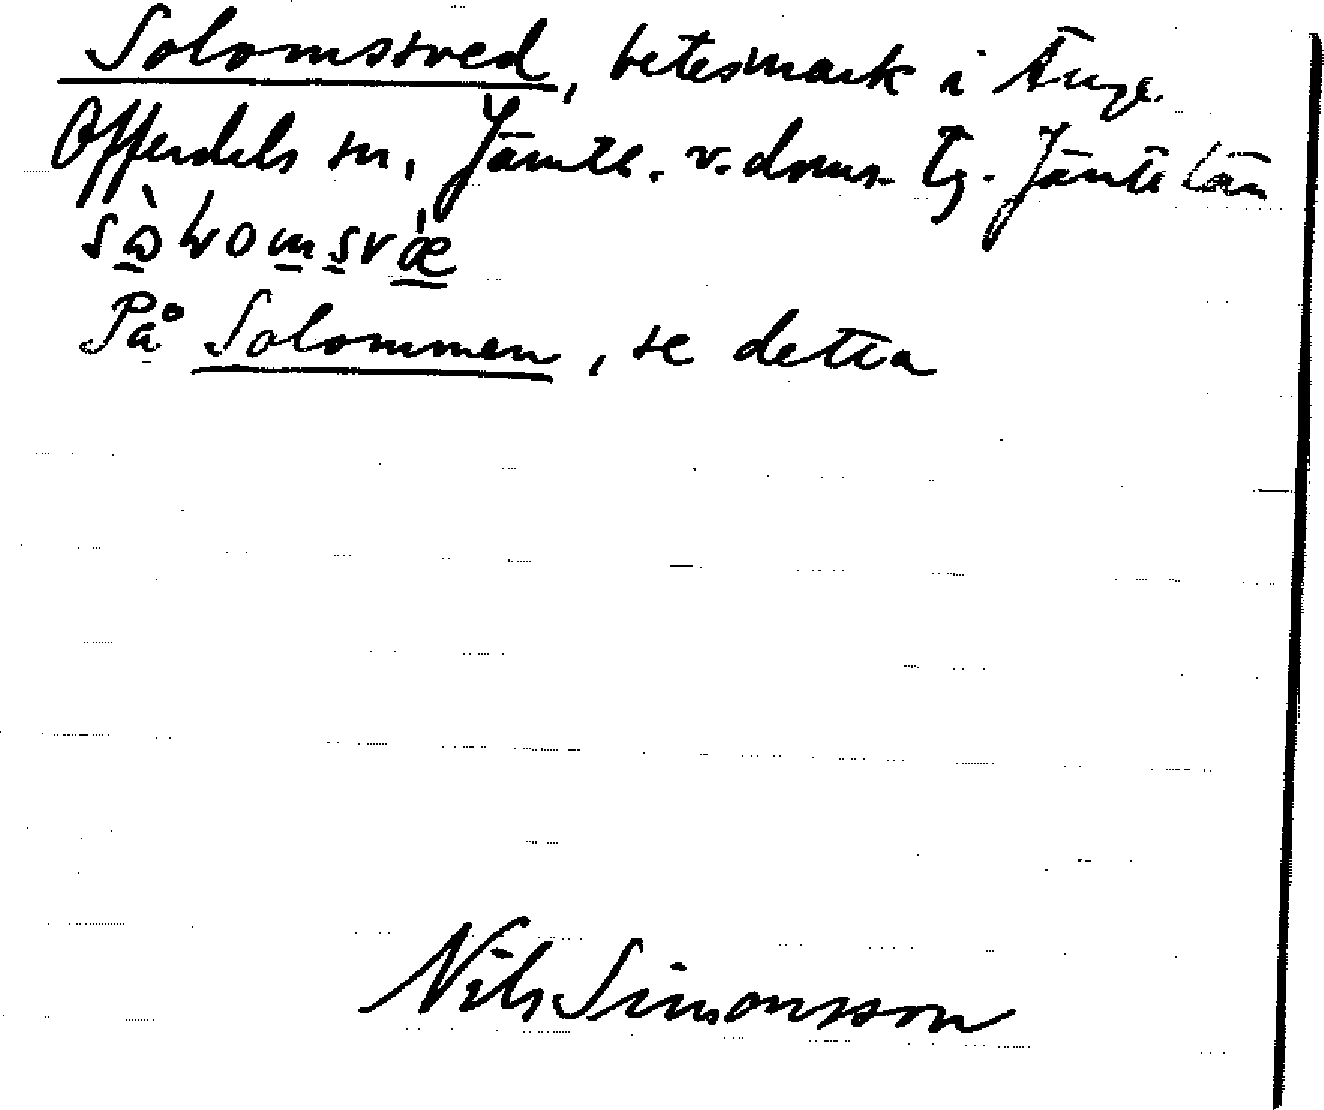 Solomssved, betesmark i Ånge.
Offerdals sn, Jämtl. v. doms. tg. Jämtl. län
På Solommen, se detta
Nils Simonsson